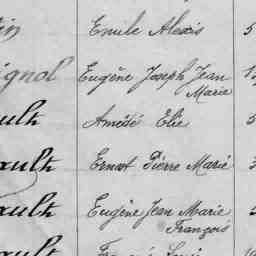 in Emile Alexis 5
ignol Eugène Joseph Jean
Marie
ault Amédé Elie 5
ault Ernest Pierre Marie
ault Eugène Jean Marie
François
ault François Louis